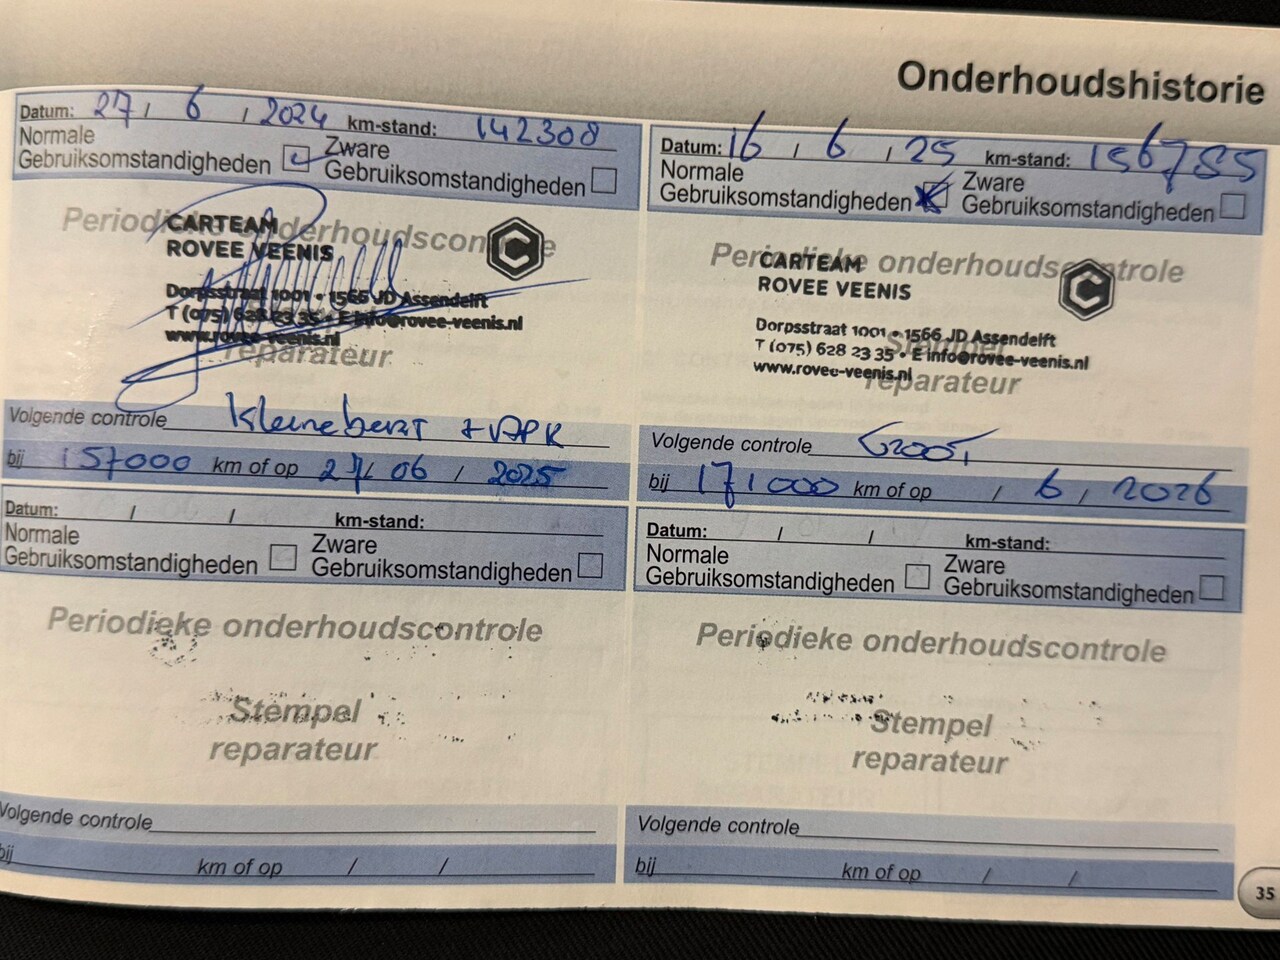 Onderhoudshistorie
Datum: 27 / 6 / 2024 km-stand: 142308
Normale Gebruiksomstandigheden Zware Gebruiksomstandigheden
Periodieke onderhoudscontrole
CARTEAM
ROVEE VEENIS
Dorpsstraat 1001 • 1566 JD Assendelft
T (075) 628 23 35 • E info@rovee-veenis.nl
www.rovee-veenis.nl
reparateur
Volgende controle Kleinebeurt + APK
bij 157000 km of op 27 / 06 / 2025
Datum: 16 / 6 / 25 km-stand: 156785
Normale Gebruiksomstandigheden Zware Gebruiksomstandigheden
Periodieke onderhoudscontrole
CARTEAM
ROVEE VEENIS
Dorpsstraat 1001 • 1566 JD Assendelft
T (075) 628 23 35 • E info@rovee-veenis.nl
www.rovee-veenis.nl
Stempel
reparateur
Volgende controle
bij 171000 km of op / 6 / 2026
Datum: / / km-stand:
Normale Gebruiksomstandigheden Zware Gebruiksomstandigheden
Periodieke onderhoudscontrole
Stempel
reparateur
Volgende controle
bij km of op / /
Datum: / / km-stand:
Normale Gebruiksomstandigheden Zware Gebruiksomstandigheden
Periodieke onderhoudscontrole
Stempel
reparateur
Volgende controle
bij km of op / /
35